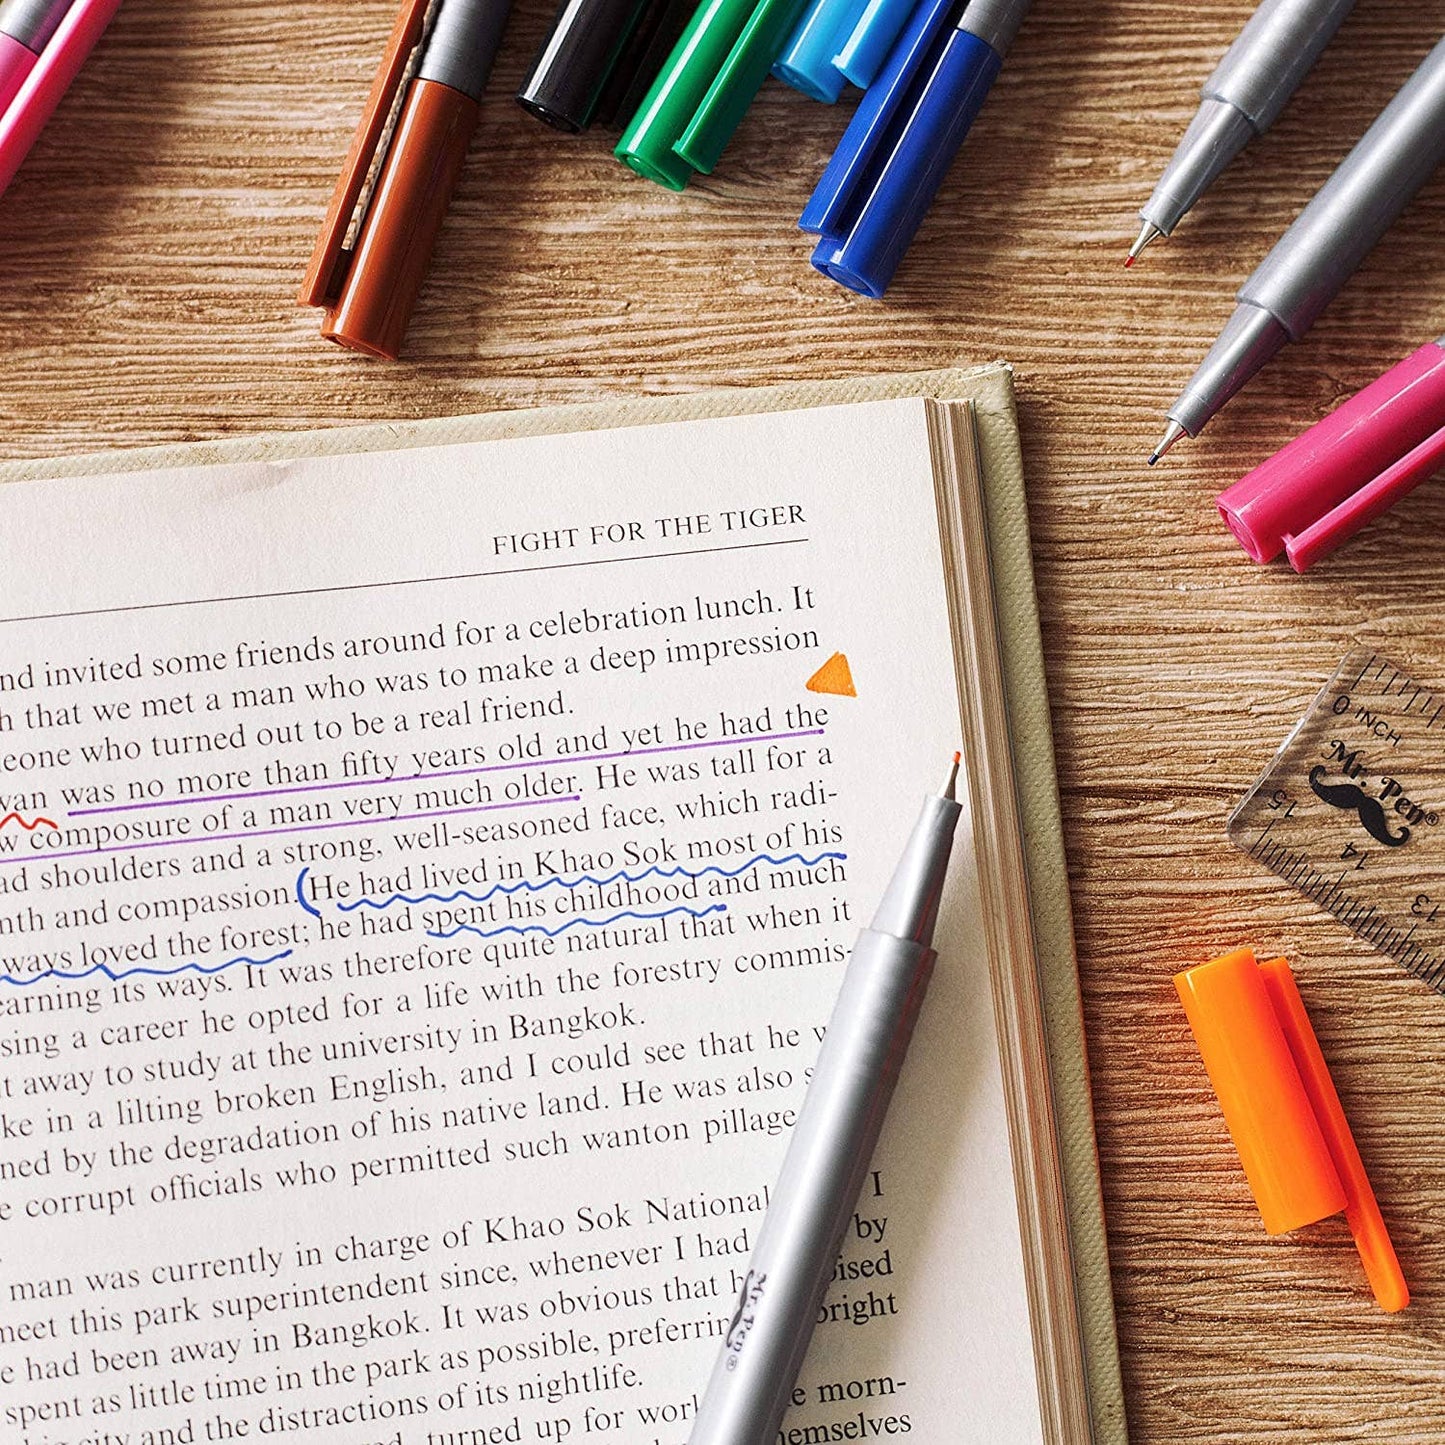 FIGHT FOR THE TIGER
nd invited some friends around for a celebration lunch. It
h that we met a man who was to make a deep impression
eone who turned out to be a real friend.
van was no more than fifty years old and yet he had the
w composure of a man very much older. He was tall for a
ad shoulders and a strong, well-seasoned face, which radi-
nth and compassion. He had lived in Khao Sok most of his
ways loved the forest; he had spent his childhood and much
earning its ways. It was therefore quite natural that when it
sing a career he opted for a life with the forestry commis-
t away to study at the university in Bangkok.
ke in a lilting broken English, and I could see that he w
ned by the degradation of his native land. He was also s
e corrupt officials who permitted such wanton pillage
man was currently in charge of Khao Sok National I
meet this park superintendent since, whenever I had by
e had been away in Bangkok. It was obvious that h oised
spent as little time in the park as possible, preferrin bright
big city and the distractions of its nightlife.
ed, turned up for wor e morn-
hemselves
Mr. Pen®
0 INCH
Mr. Pen®
15
14
13